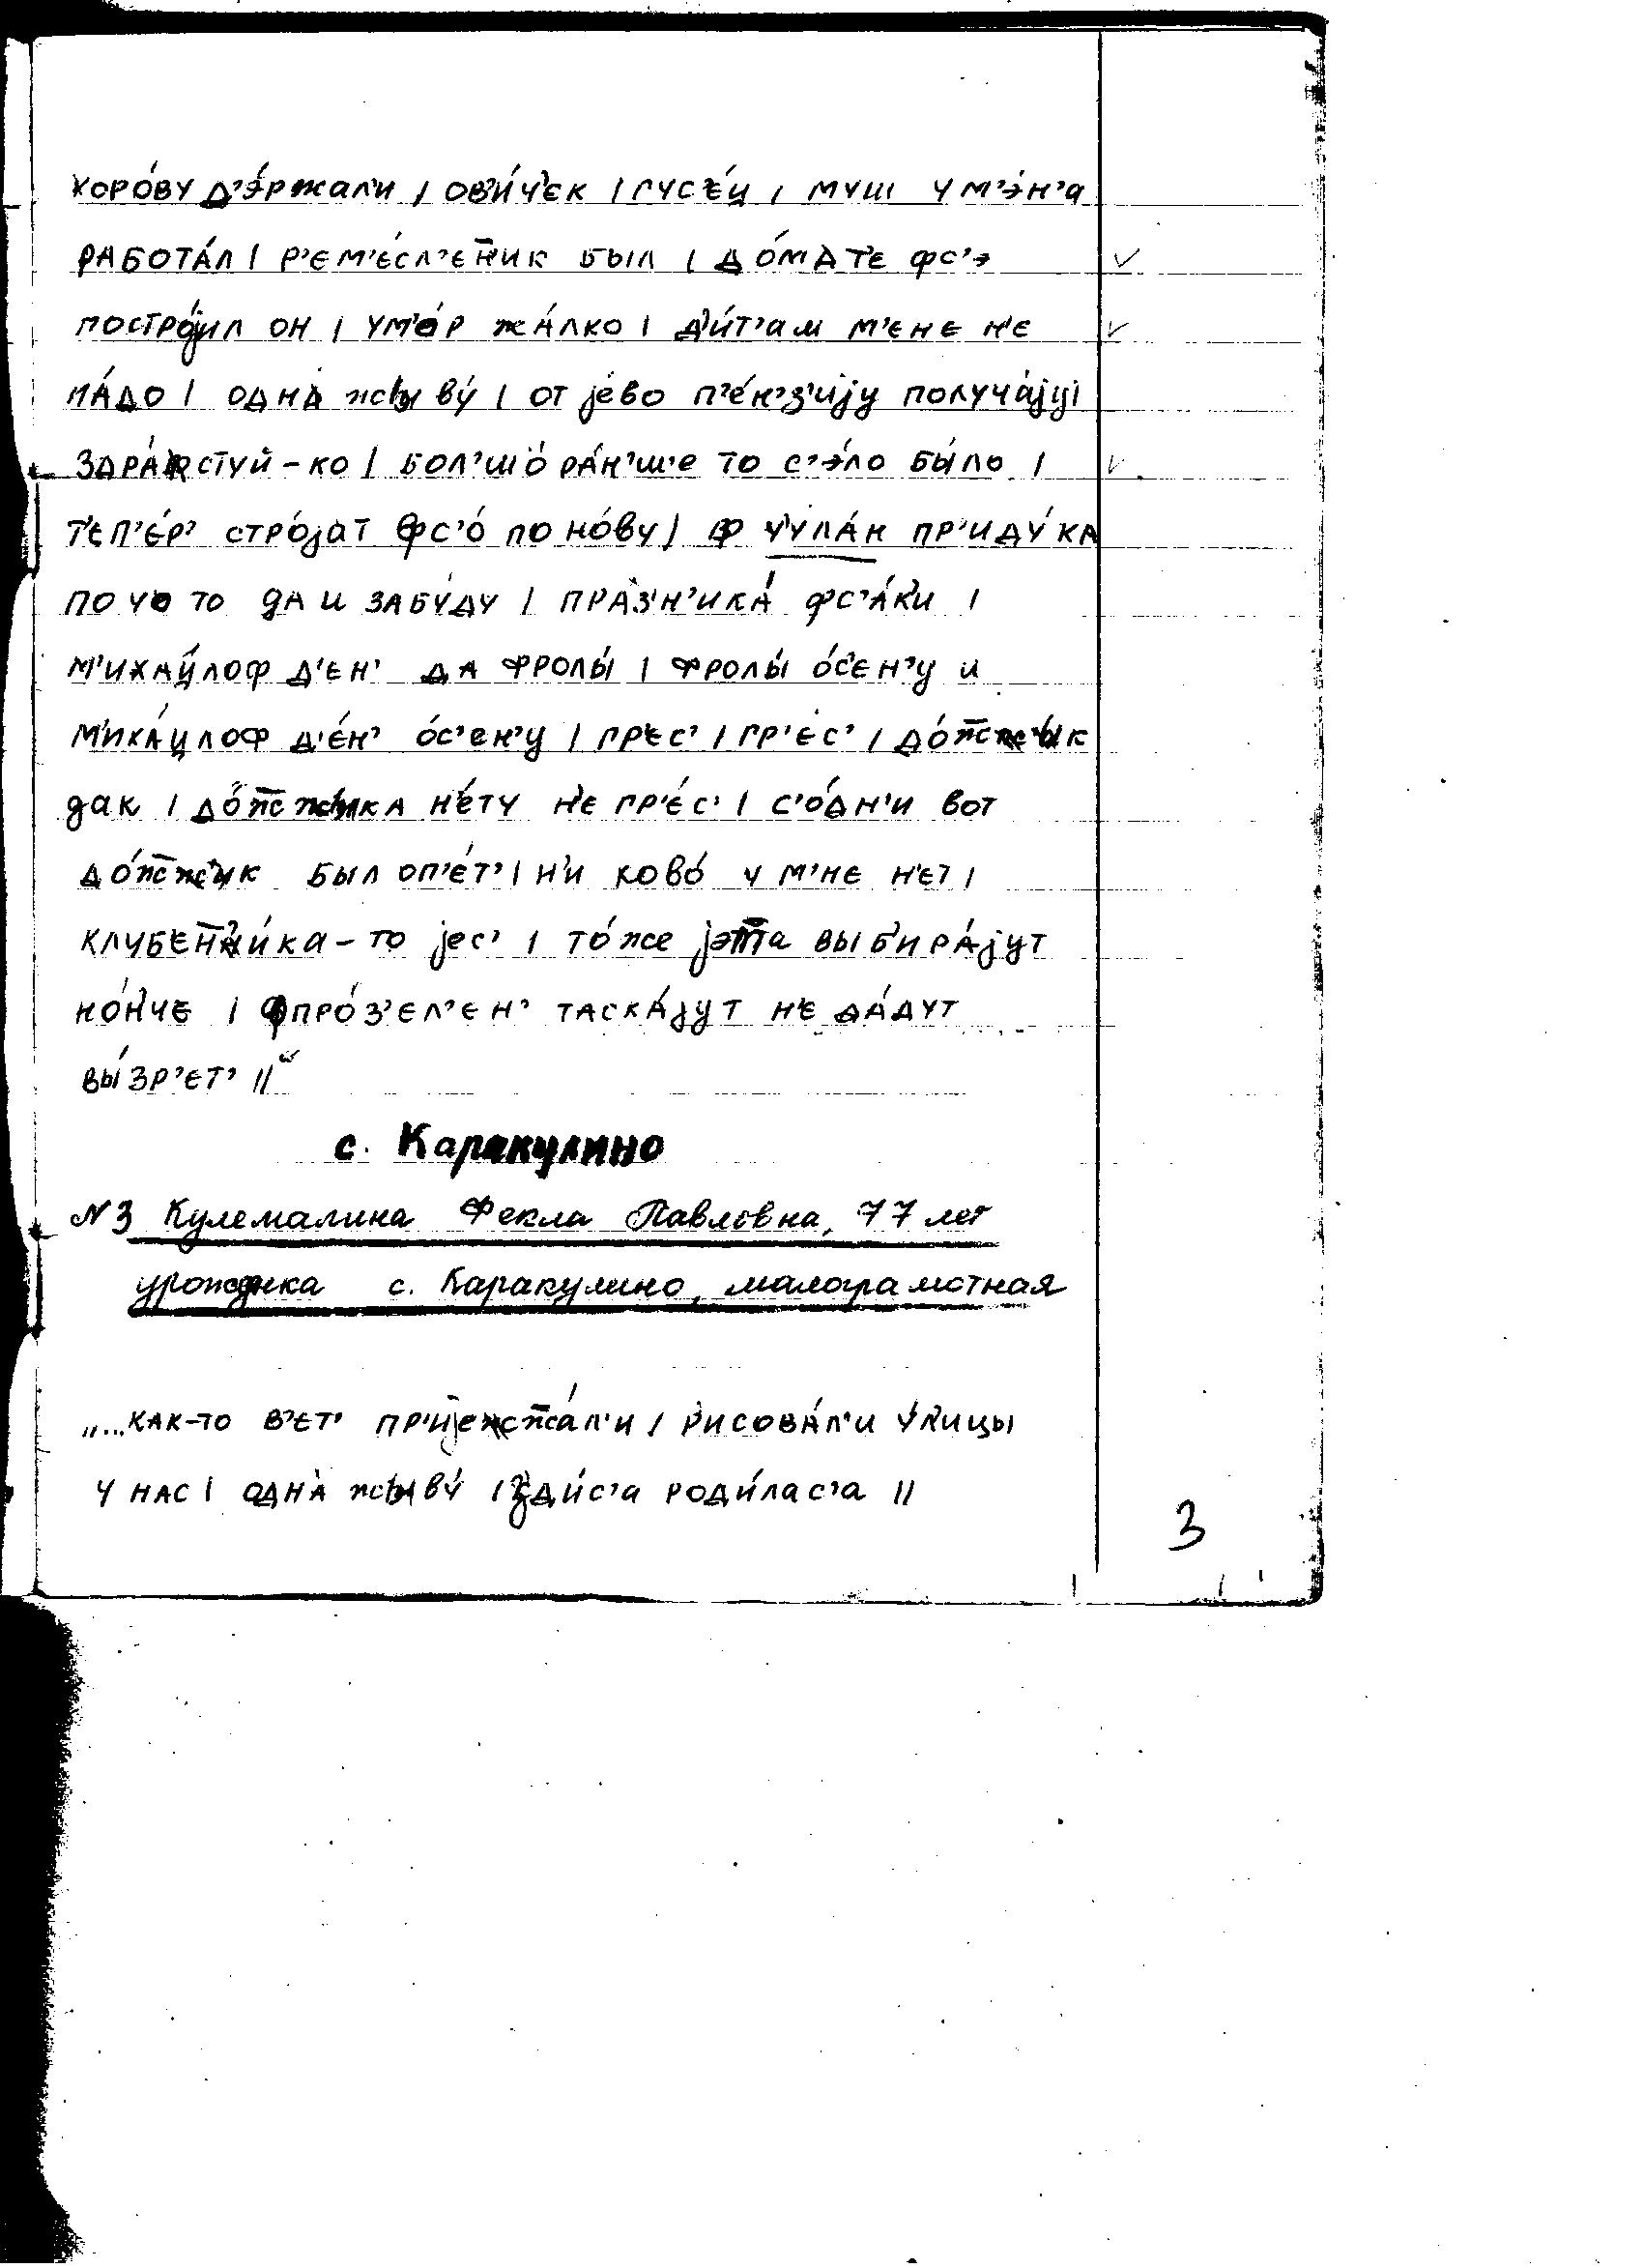 коро́ву д'э́ржал'и | ов'и́ч'ек | гус'е́й | муш у м'э́н'а
работа́л | р'ем'е́сл'ен̄ик был | дома́ т'е фс'э
постро́јил он | ум'о́р жа́лко | д'и́т'ам м'ене н'е
на́до | одна́ жыву́ | от јево́ п'е́н'з'ијy получа́јy |
здра́стуй-ко | бол'шо́ ра́н'ш'е то с'э́ло бы́ло |
т'еп'е́р' стро́јат фс'о́ по но́ву | ф чула́н пр'иду́ ка
по чо то да и забу́ду | пра́з'н'ика́ фс'а́к'и |
м'иха́йлоф д'ен' да фролы́ | фролы́ о́с'ен'у и
м'иха́йлоф д'е́н' о́с'ен'у | гр'ес' | гр'е́с' | до́ж̄жык
дак | до́ж̄жыка н'е́ту н'е гр'е́с' | с'о́дн'и вот
до́ж̄жык был оп'е́т' | н'и ково́ у м'не н'ет |
клуб'ен̄'и́ка-то јес' | то́же јэт̄а выб'ира́јут
но́н'че | фпро́з'ел'ен' таска́јут н'е даду́т
вы́зр'ет' ||"
с. Каракулино
№3 Кулемалина Фекла Павловна, 77 лет
урожднка с. Каракулино, малограмотная
„...как-то в'ет' пр'ијеж̄а́л'и | р'исова́л'и у́л'ицы
у нас | одна́ жыву́ | зд'и́с'а род'и́лас'а ||
3